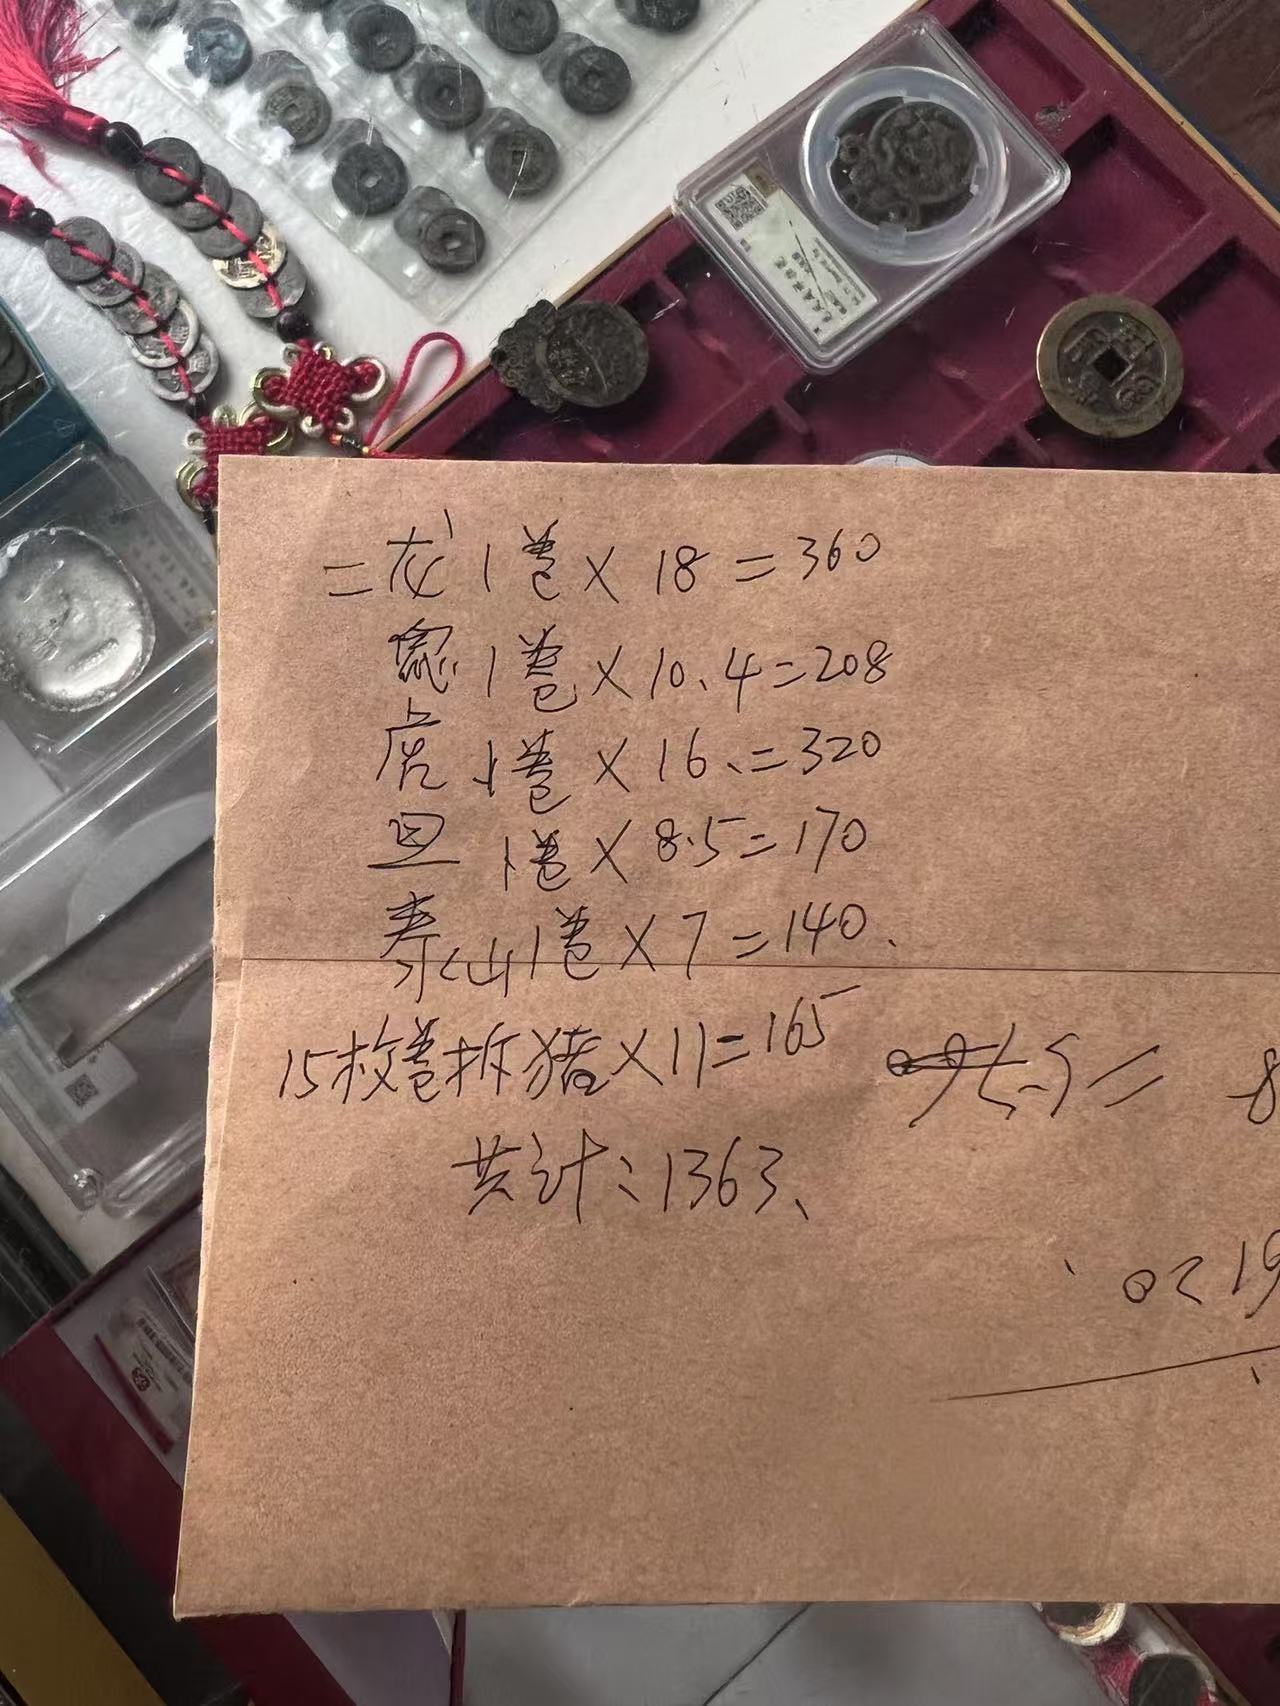 二龙1卷×18=360
1卷×10.4=208
虎1卷×16=320
1卷×8.5=170
泰山1卷×7=140
15枚卷拆猪×11=165
共计:1363